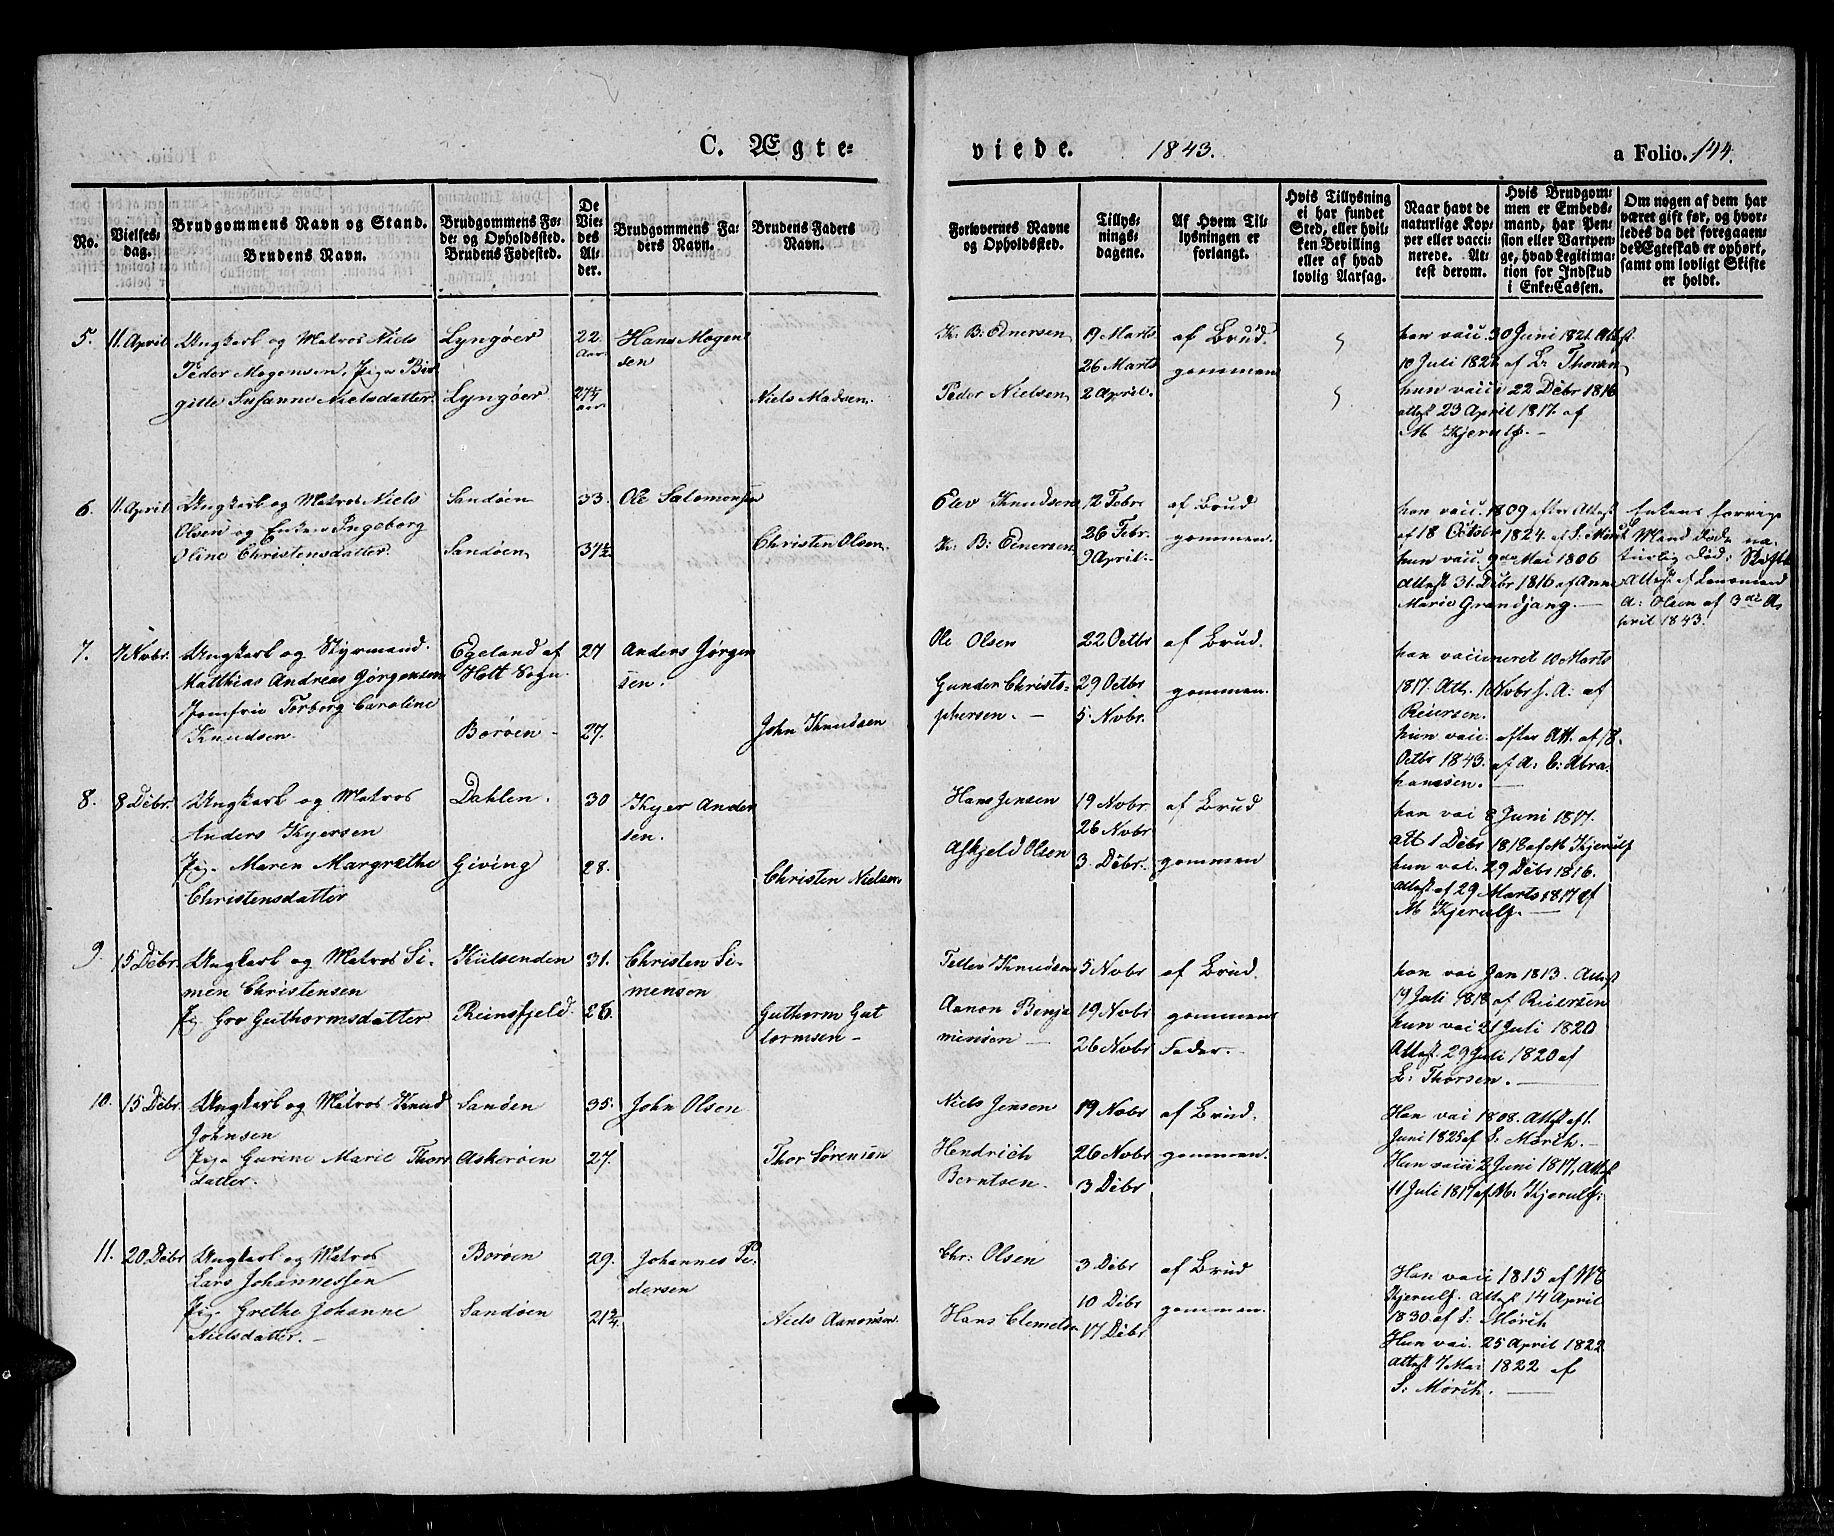 C. Ægte-
viede. 1843. a Folio. 144.
No.
Vielses-
dag.
Brudgommens Navn og Stand.
Brudens Navn.
Brudgommens Fø-
de- og Opholdssted.
Brudens Fødested.
De
Vie-
des
Al-
der.
Brudgommens Fa-
ders Navn.
Brudens Faders
Navn.
Forlovernes Navne
og Opholdssted.
Tillys-
nings-
dagene.
Af Hvem Til-
lysningen er
forlangt.
Hvis Tillysning
ei har fundet
Sted, eller hvil-
ken Bevilling
eller af hvad
lovlig Aarsag.
Naar havt de
naturlige Kop-
per eller vacci-
nerede. At-
test derom.
Hvis Brudgom-
men er Embeds-
mand, har Pen-
sion eller Vartpen-
ge, hvad Legitima-
tion for Indskud
i Enke-Cassen.
Om nogen af dem har
været gift før, og hvor-
ledes da det foregaaen-
de Ægteskab er ophørt,
samt om lovligt Skifte
er holdt.
5. 11. April
Ungkarl og Matros Niels
Peder Mogensen. Pige Bir
gitte Susanne Nielsdatter.
Lyngöer
Lyngöer
22
Aar
27½
aar
Hans Mogen
sen
Niels Madsen.
K. B: Enersen
Peder Nielsen
19 Marts
26 Marts
2 April.
af Brud
gommen
han vaii 30 Juni 1821 Attst
10 Juli 1821 af L: Thorsen,
hun vaii 22 Debr 1816
attest 23 April 1817. af
M Kjerulf.
6. 11 April
Ungkarl og Matros Niels
Olsen og Enken Ingeborg
Oline Christensdatter.
Sandöen
Sandöen
33.
31½
Ole Salomonsen
Christen Olsen.
Elev Knudsen
K: B: Enersen
12 Febr
26 Febr.
9 April:
af Brud
gommen.
han vaii. 1809 efter Attest
af 18 Octobr 1824. af S. Mörch
hun vaii. 9de Mai 1806
Attest 31. Debr 1816 af Anne
Marie Grandjang.
Enkens forrige
Mand döde na-
turlig Död: Skifte
Attest af Lensmand
A: Olsen af 3die A-
pril 1843.
7. 7 Novbr.
Ungkarl og Styrmand.
Matthias Andreas Jörgensen
Jomfrue Torborg Caroline
Knudsen.
Egeland af
Holt Sogn.
Boröen
27
27.
Anders Jörgen
sen.
John Knudsen
Ole Olsen
Gunder Christo-
phersen.
22 Octbr
29 Octbr
5. Novbr.
af Brud
gommen.
han vaiineret 10 Marts
1817. Att. 1 Novbr s. A: af
Reiersen.
hun vaii. efter Att. af 18.
Octbr 1843. af A. C: Abra
hamsen.
8. 8 Debr.
Ungkarl og Matros
Anders Kjersen
Pige Maren Margrethe
Christensdatter
Dahlen.
Giving
30
28.
Kjer Ander
sen.
Christen Nielsen
Hans Jensen
Askjeld Olsen
19 Novbr.
26 Novbr
3. Debr.
af Brud
gommen
han vai 8 Juni 1817.
att 1 Debr 1818 af M Kjerulf
hun vai. 29 Debr 1816.
attest af 29 Marts 1817 af
M Kjerulf.
9. 15 Debr.
Ungkarl og Matros Si-
men Christensen
Pig. Gro Guthormsdatter
Kiilsenden
Reinsfjeld.
31.
26.
Christen Si-
mensen
Guthorm Gut
tormsen
Tellev Knudsen
Aanon Benja
minsen
5 Novbr
19 Novbr
26 Novbr
af Brud.
gommens
Fader.
han vai Jan 1813. Attest
19 Juli 1818 af Reiersen
hun vai 21 Juli 1820
Attest. 29 Juli 1820 af
L: Thorsen.
10. 15 Debr.
Ungkarl og Matros Knud
Johnsen
Pige Gurine Marie Thors
datter.
Sandöen
Askeröen
35.
27.
John Olsen
Thor Sörensen
Niels Jensen
Hendrich
Berntsen.
19 Novbr
26 Novbr
3 Debr
af Brud.
gommen.
Han vai 1808. Attst af 1.
Juni 1825 af S: Mörch.
Hun vaiii 2 Juni 1817, Attst
11 Juli 1817 af M: Kjerulf:
11. 20 Debr
Ungkarl og Matros
Lars Johannessen
Pige Grethe Johanne
Nielsdatter.
Boröen
Sandöen
29.
21 2/4.
Johannes Pe-
dersen
Niels Aanonsen.
Chr: Olsen
Hans Clemetsen
3 Debr
10 Debr
17 Debr
af Brud
gommen.
Han vaii 1815 af M
Kjerulf. Attest 14 April
1830. af S: Mörch
Hun vai. 25 April 1822
attest 7 Mai 1822 af
S: Mörch.